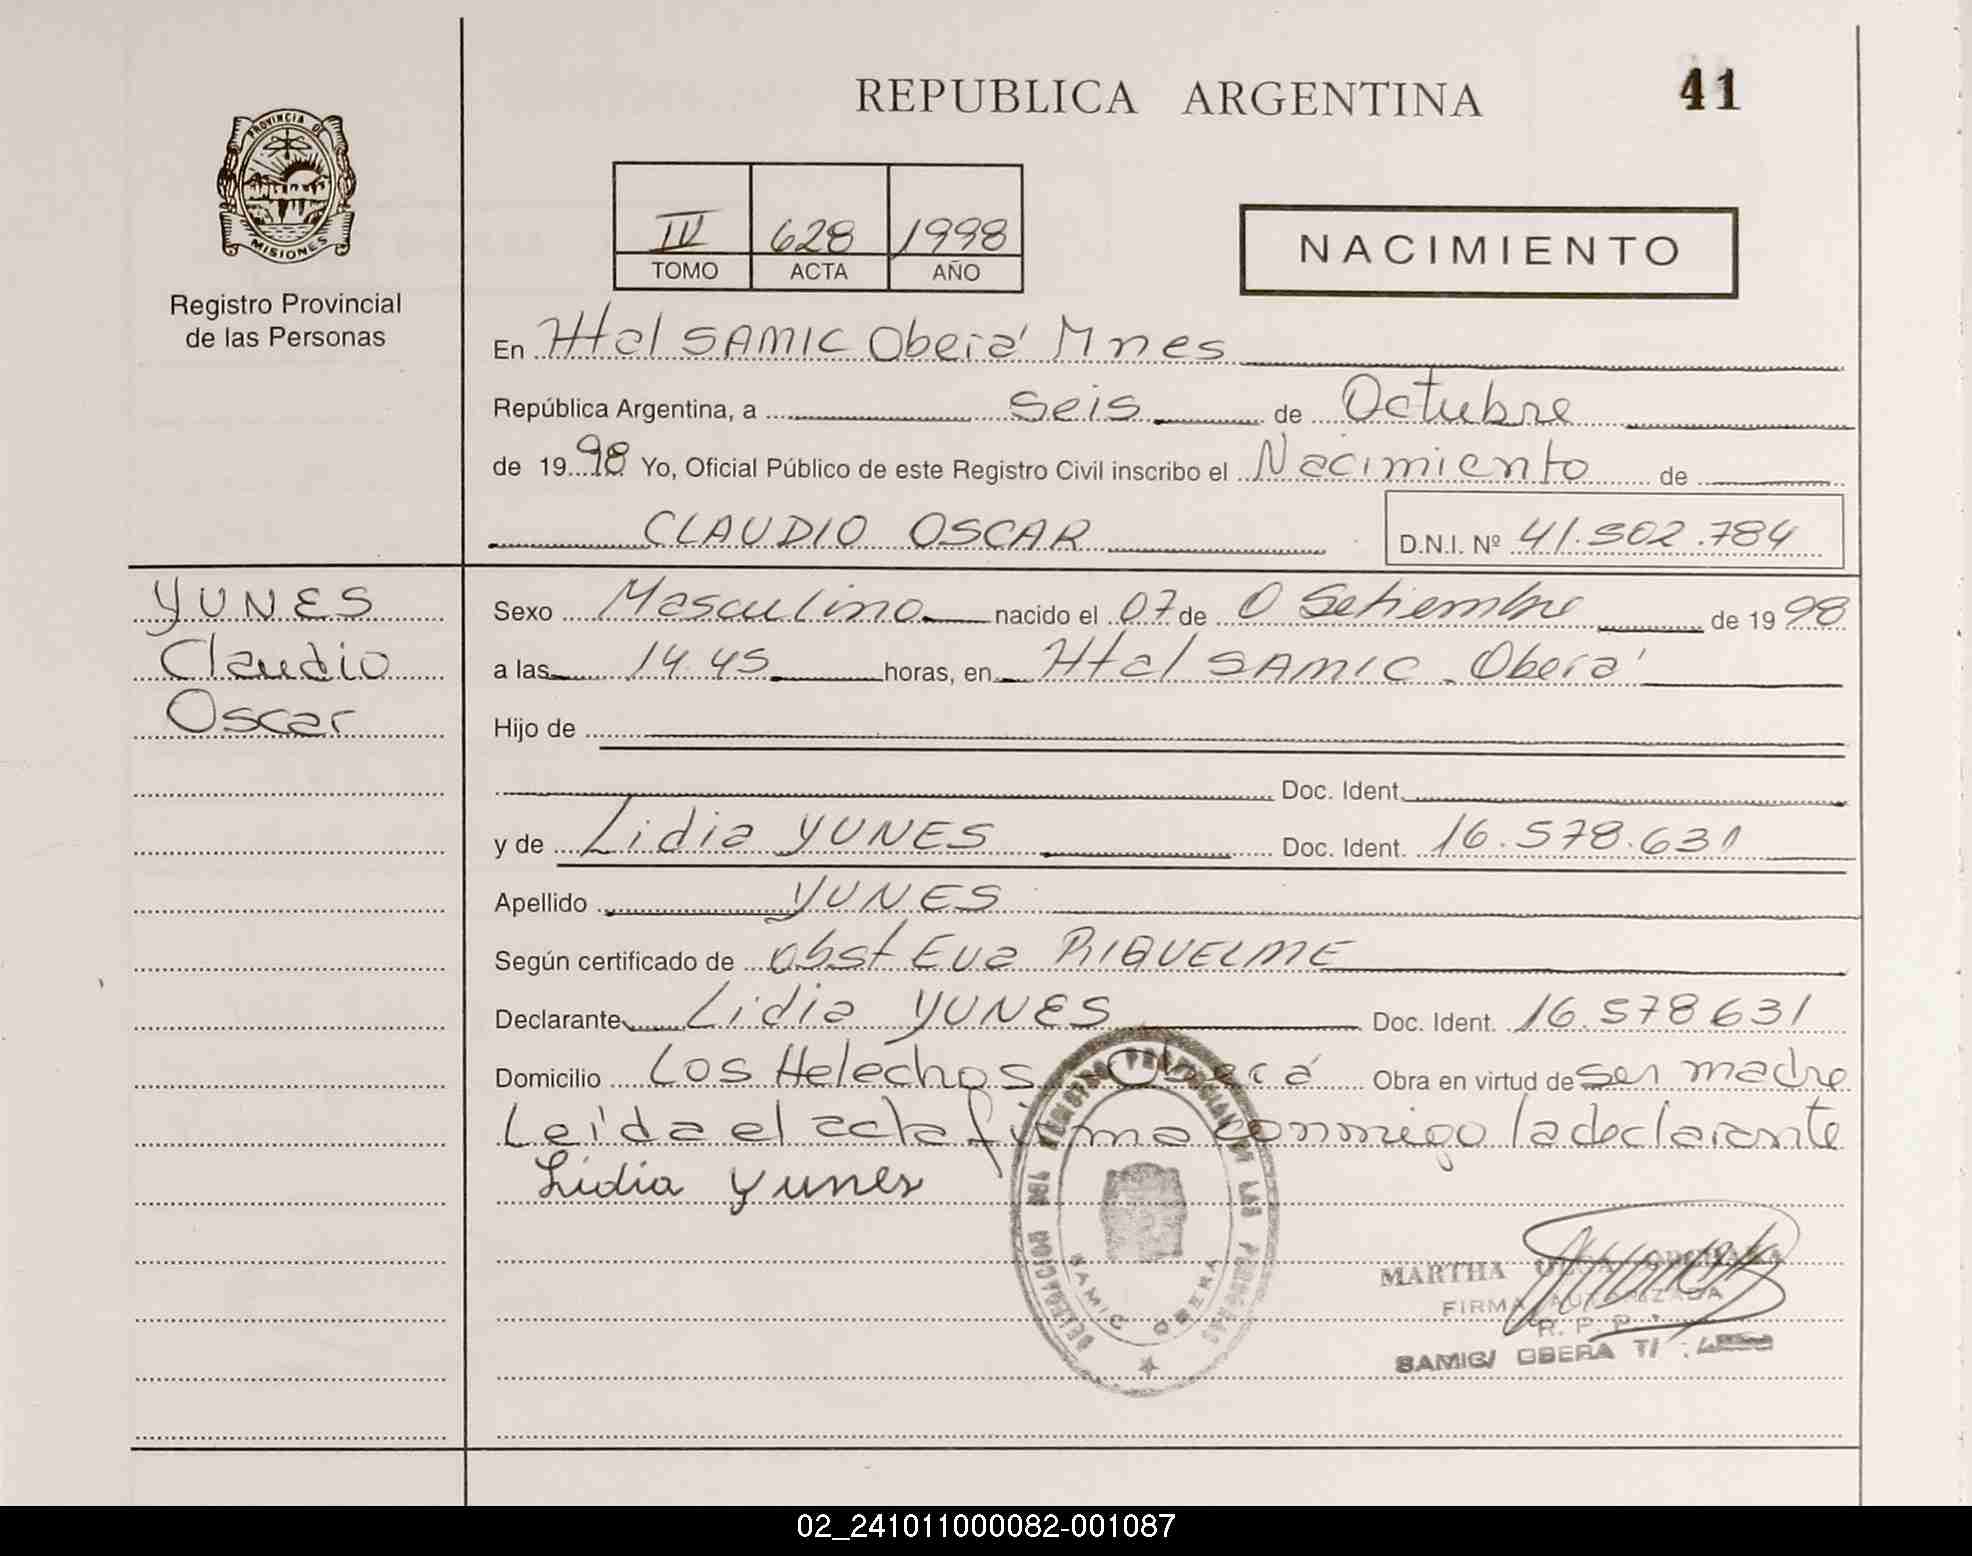 REPUBLICA ARGENTINA
41
PROVINCIA DE
MISIONES
Registro Provincial
de las Personas
IV 628 1998
TOMO ACTA AÑO
NACIMIENTO
En Htal SAMIC Oberá Mnes
República Argentina, a seis de Octubre
de 1998 Yo, Oficial Público de este Registro Civil inscribo el Nacimiento de
CLAUDIO OSCAR D.N.I. Nº 41.502.784
YUNES
Claudio
Oscar
Sexo Masculino nacido el 07 de Setiembre de 1998
a las 14.45 horas, en Htal SAMIC. Oberá
Hijo de
Doc. Ident.
y de Lidia YUNES Doc. Ident. 16.578.631
Apellido YUNES
Según certificado de obst Eva RIQUELME
Declarante Lidia YUNES Doc. Ident. 16.578631
Domicilio Los Helechos Oberá Obra en virtud de ser madre
Leída el acta firma conmigo la declarante
Lidia Yunes
DELEGACION DEL REGISTRO PROVINCIAL DE LAS PERSONAS
SAMIC OBERA
MARTHA
FIRMA AUTORIZADA
R. P. P.
SAMIC/ OBERA
02_241011000082-001087